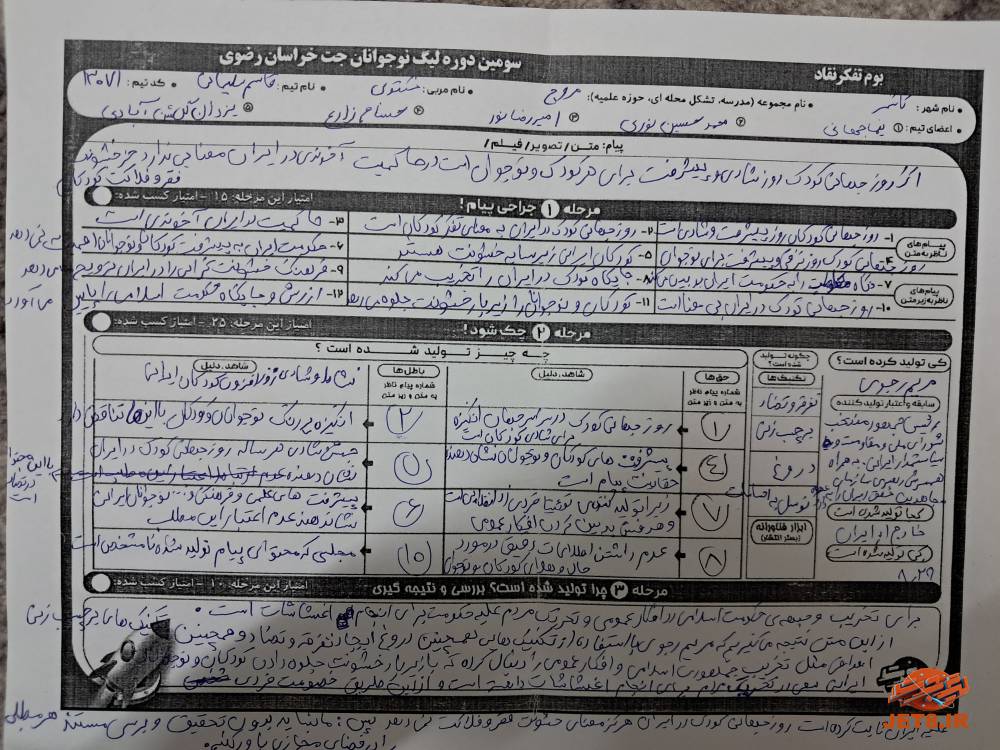 سومین دوره لیگ نوجوانان جت خراسان رضوی
بوم تفکر نقاد
نام شهر: کاشمر • نام مجموعه (مدرسه، تشکل محله ای، حوزه علمیه): • نام مربی: • نام تیم: قاسم سلیمانی • کد تیم: ۱۳۰۷۱
اعضای تیم: ① ② محمد حسین نوری ③ امیررضا ④ حسام زارع ⑤ یزدان
پیام: متن/ تصویر/ فیلم/
اگر روز جهانی کودک روز شادی و پیشرفت برای هر کودک و نوجوان است در حاکمیت آخوندی در ایران معنایی ندارد جز خشونت
فقر و فلاکت کودکان
مرحله ① جراحی پیام! امتیاز این مرحله: ۱۵ - امتیاز کسب شده:
پیام‌های ناظر به متن
۱- روز جهانی کودکان روز پیشرفت و شادی است ۲- روز جهانی کودک در ایران به معنای فقر کودکان است ۳- حاکمیت در ایران آخوندی است
۴- روز جهانی کودک روز ترقی و پیشرفت برای نوجوان ۵- کودکان ایرانی زیر سایه خشونت هستند ۶- حکومت ایران به پیشرفت کودکان و نوجوانان اهمیت نمی دهد
پیام‌های ناظر به زیر متن
۷- نگاه به حکومت ایران بدبین می کند ۸- جایگاه کودک در ایران را تخریب می کند ۹- فرهنگ خشونت گرایی را در ایران ترویج می دهد
۱۰- روز جهانی کودک در ایران بی معنا است ۱۱- کودکان و نوجوانان را زیر بار خشونت جلوه می دهد ۱۲- ارزش و جایگاه حکومت اسلامی را پایین می آورد
مرحله ② چک شود! امتیاز این مرحله: ۲۵ - امتیاز کسب شده:
کی تولید کرده است؟
چگونه تولید شده است؟
چه چیز تولید شده است؟
مریم رجوی
سابقه و اعتبار تولیدکننده
رئیس جمهور منتخب
شورای ملی مقاومت و
سیاستمدار ایرانی به همراه
همسرش رهبری سازمان
مجاهدین خلق ایران
کجا تولید شده است
خارج از ایران
کی تولید شده است
۸،۲۹
تکنیک‌ها
تفرقه و تضاد
برچسب زنی
دروغ
توسل به احساسات
ابزار فناورانه
(بستر انتشار)
حق‌ها
شماره پیام ناظر به متن و زیر متن
شاهد، دلیل
باطل‌ها
شماره پیام ناظر به متن و زیر متن
شاهد، دلیل
نشاط و شادی روزافزون کودکان ایرانی
۱ روز جهانی کودک در سراسر جهان انگیزه
برای شادی کودکان است
۲ انگیزه پررنگ نوجوانان و کودکان با این تناقض دارد
۴ پیشرفت های کودکان و نوجوانان نشان دهنده
حقانیت پیام است
۵ جشن شادی هر ساله روز جهانی کودک در ایران
نشان دهنده عدم اعتبار این مطلب
۷ زیرا تولید کننده
و هدفش بدبین کردن افکار عمومی
۶ پیشرفت های علمی و فرهنگی و... نوجوان ایرانی
نشان دهنده عدم اعتبار این مطلب
۸ عدم داشتن اطلاعات دقیق در مورد
حال و هوای کودکان و نوجوان
۱۰ که محتوای پیام تولید شده نامشخص است
مرحله ③ چرا تولید شده است؟ بررسی و نتیجه گیری امتیاز این مرحله: ۱۰ - امتیاز کسب شده:
برای تخریب وجهه ی حکومت اسلامی در افکار عمومی و تحریک مردم علیه حکومت برای انجام اغتشاشات است.
از این متن نتیجه می گیریم که مریم رجوی با استفاده از تکنیک هایی همچنین دروغ ایجاد تفرقه و تضاد و همچنین تکنیک های برچسب زنی
اهدافی مثل تخریب جمهوری اسلامی و افکار عمومی را دنبال کرده که با زیر بار خشونت جلوه دادن کودکان و نوجوانان
ایرانی سعی در تحریک مردم برای انجام اغتشاشات داشته است و از این طریق خصومت فردی
علیه ایران ثابت کرده است روز جهانی کودک در ایران هرگز معنای خشونت فقر و فلاکت نمی دهد پس: ما نباید بدون تحقیق و بررسی مستند هر مطلبی
را در فضای مجازی باور کنیم.
JET8.IR